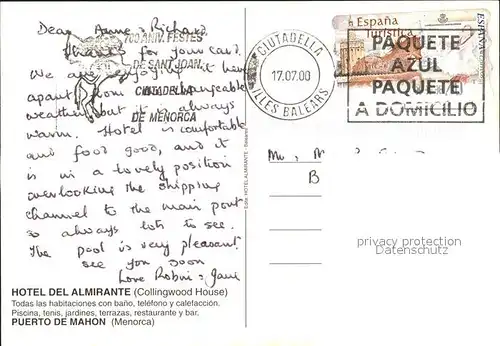 Dear Anne & Richard,
Thanks for your card.
We are enjoying it here
apart from changeable
weather but it is always
warm. Hotel is comfortable
and food good, and it
is in a lovely position
overlooking the shipping
channel to the main port
so always lots to see.
The pool is very pleasant.
See you soon
Love Robin & Jane
700 ANIV. FESTES
DE SANT JOAN
CIUTADELLA
DE MENORCA
CIUTADELLA
17.07.00
ILLES BALEARS
España
Turística
ESPAÑA
PAQUETE
AZUL
PAQUETE
A DOMICILIO
B
privacy protection
Datenschutz
HOTEL DEL ALMIRANTE (Collingwood House)
Todas las habitaciones con baño, teléfono y calefacción.
Piscina, tenis, jardines, terrazas, restaurante y bar.
PUERTO DE MAHON (Menorca)
HOTEL ALMIRANTE